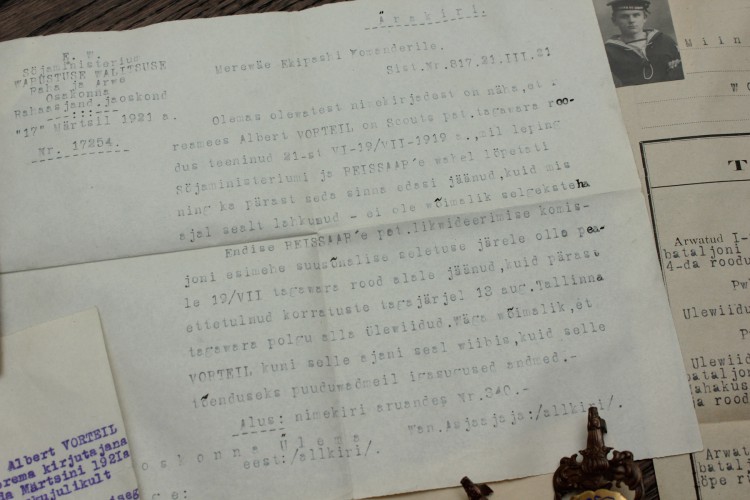 Ärakiri.
E. W.
Sõjaministerius
WARUSTUSE WALITSUSE
Raha ja Arwe
Osakonna
Rahaasjand.jaoskond
---:::---
"17" Märtsil 1921 a.
Nr. 17254.
Merewäe Ekipashi Komanderile.
Sist.Nr.817.21.III.21
Olemas olewatest nimekirjadest on näha, et
reamees Albert VORTEIL on Scouts pat.tagawara roo-
dus teeninud 21-st VI-19/VII-1919 a., mil leping
Sõjaministeriumi ja REISSAAR'e wahel lõpetati
ning ka pärast seda sinna edasi jäänud, kuid mis
ajal sealt lahkunud - ei ole wõimalik selgeksteha
Endise REISSAAR'e pat.likwideerimise komis-
joni esimehe suusõnalise seletuse järele olla pea-
le 19/VII tagawara rood alale jäänud, kuid pärast
ettetulnud korratuste tagajärjel 13 aug. Tallinna
tagawara polgu alla ülewiidud. Wäga wõimalik, et
VORTEIL kuni selle ajani seal wiibis, kuid selle
tõenduseks puuduwad meil igasugused andmed.-
Alus: nimekiri aruandes Nr.340.-
Wan.Asjaajaja:/allkiri/.
Osakonna Ülema
eest:/allkiri/.
Albert VORTEIL
kirjutajana
Märtsini 1921a
T
Arwatud I-
bataljoni
4-da roodu
Ulewiidu
Ulewiidu
bataljoni
ja rood
Arwat